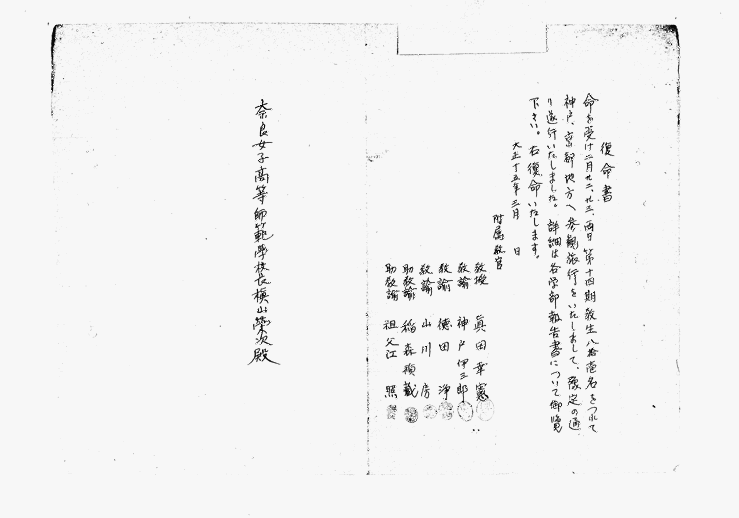 復命書
命を受け二月廿二、廿三、両日第十四期教生八拾壱名をつれて
神戸、京都地方へ参観旅行をいたしまして、豫定の通
り遂行いたしました。詳細は各学部報告書について御覧
下さい。右復命いたします。
大正十五年三月　日
附属教官
教授　眞田幸憲
教諭　神戸伊三郎
教諭　徳田浄
教諭　山川房
助教諭　稲森
助教諭　祖父江照
奈良女子高等師範学校長槇山榮次殿